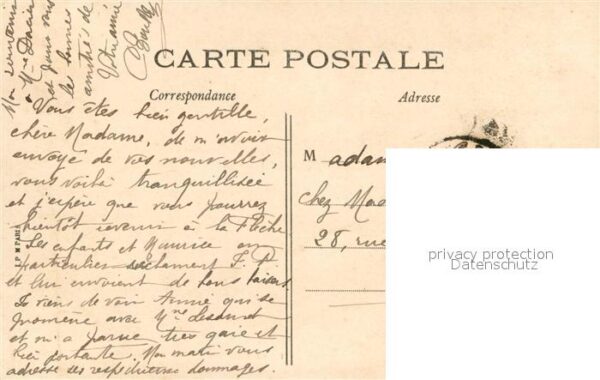 CARTE POSTALE
Correspondance
Adresse
Vous êtes bien gentille,
chère Madame, de m'avoir
envoyé de vos nouvelles,
vous voilà tranquillisée
et j'espère que vous pourrez
bientôt revenir à la Flèche
Les enfants et Maurice en
particulier réclament F. P
et lui envoient de bons baisers
Je viens de voir Annie qui se
promène avec Mme
et m'a parue très gaie et
bien portante. Mon mari vous
adresse ses respectueux hommages.
Mon souvenir
à Mme
et pour vous
les bonnes
amitiés de
Votre amie
Madam
chez Mad
28, rue
J.P M PARIS
privacy protection
Datenschutz